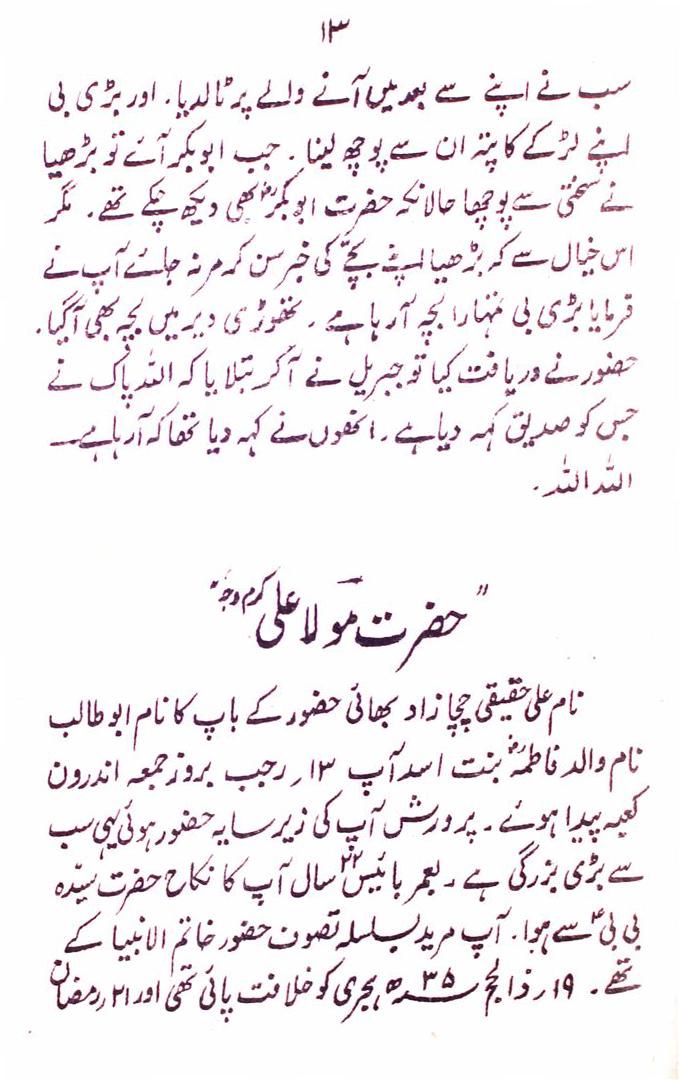 ۱۳
سب نے اپنے سے بعد میں آنے والے پر ٹالدیا۔ اور بڑی بی
اپنے لڑکے کا پتہ ان سے پوچھ لینا۔ جب ابو بکر آئے تو بڑھیا
نے سختی سے پوچھا حالانکہ حضرت ابو بکرؓ بھی دیکھ چکے تھے۔ مگر
اس خیال سے کہ بڑھیا اپنے بچے کی خبر سن کر مر نہ جائے آپ نے
فرمایا بڑی بی تمہارا بچہ آ رہا ہے۔ تھوڑی دیر میں بچہ بھی آگیا۔
حضور نے دریافت کیا تو جبریل نے آکر بتلایا کہ اللہ پاک نے
جس کو صدیق کہہ دیا ہے۔ انھوں نے کہہ دیا تھا کہ آرہا ہے۔
اللہ اللہ۔
"حضرت مولا علی کرم وجہ"
نام علی حقیقی چچا زاد بھائی حضور کے باپ کا نام ابو طالب
نام والد فاطمہؓ بنت اسد آپ ۱۳؍ رجب بروز جمعہ اندرون
کعبہ پیدا ہوئے۔ پرورش آپ کی زیر سایہ حضور ہوئی یہی سب
سے بڑی بزرگی ہے۔ بعمر بائیس ۲۲ سال آپ کا نکاح حضرت سیدہ
بی بیؑ سے ہوا۔ آپ مرید بسلسلہ تصوف حضور خاتم الانبیا کے
تھے۔ ۱۹؍ ذالحج ۳۵ھ ہجری کو خلافت پائی تھی اور ۲۱؍ رمضان